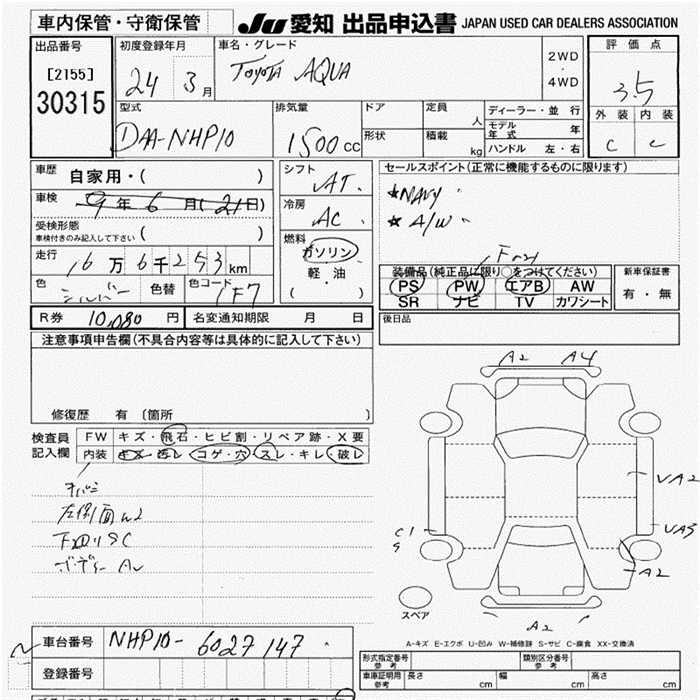 車内保管・守衛保管
JU 愛知 出品申込書 JAPAN USED CAR DEALERS ASSOCIATION
出品番号
[2155]
30315
初度登録年月
24 3月
車名・グレード
TOYOTA AQUA
2WD
・
4WD
評価点
3.5
外装 内装
C C
型式
DAA-NHP10
排気量
1500cc
ドア
形状
定員 人
積載 kg
ディーラー・並 行
モデル年式 年
ハンドル 左・右
車歴 自家用・( )
車検 9年6月(21日)
受検形態
車検付きのみ記入して下さい ( )
走行 16万6千253km
色 シルバー 色替 色コード 1F7
シフト AT
冷房 AC
燃料
ガソリン
軽・油
( )
セールスポイント(正常に機能するものに限ります)
★NAVY
★A/W
装備品(純正品に限り○をつけてください)
PS PW エアB AW
SR ナビ TV カワシート
新車保証書
有・無
R券 10,080円 名変通知期限 月 日
後日品
注意事項申告欄(不具合内容等は具体的に記入して下さい)
修復歴 有 〔箇所 〕
検査員記入欄
FW キズ・飛石・ヒビ割・リペア跡・X要
内装 キズ・汚レ・コゲ・穴・スレ・キレ・破レ
左側面W2
下回りSC
A2 A4
VA2
VA3
C1
A2
A2
スペア
A-キズ E-エクボ U-凹み W-補修跡 S-サビ C-腐食 XX-交換済
車台番号 NHP10-6027147
登録番号
形式指定番号
参考
類別区分番号
参考
車庫証明用
参考
長さ cm 幅 cm 高さ cm